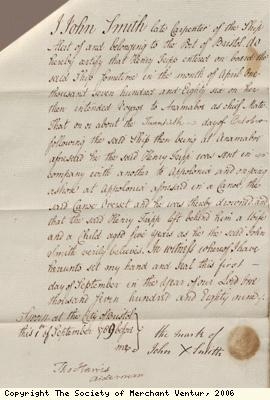 I John Smith late Carpenter of the Ship
Alert of and belonging to the Port of Bristol do
hereby certify that Henry Scapp entered on board the
said Ship sometime in the month of April One
thousand seven hundred and Eighty six on her
then intended Voyage to Anamaboe as chief Mate
That on or about the Twentieth day of October
following the said Ship then being at Anamaboe
aforesaid he the said Henry Scapp was sent in
company with another to Appolonia and on going
ashore at Appolonia aforesaid in a Canoe the
said Canoe overset and he was thereby drowned and
that the said Henry Scapp left behind him a Wife
and a Child aged five years as he the said John
Smith verily believes. In witness whereof I have
hereunto set my hand and Seal this first
day of September in the Year of our Lord One
thousand seven hundred and Eighty nine
Sworn at the City of Bristol
this 1st of September 1789 before
me
the mark of
John X Smith
Tho Harris
Alderman
Copyright The Society of Merchant Ventur, 2006